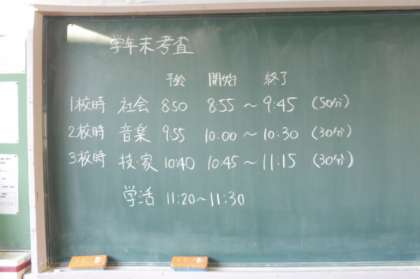 学年末考査
予鈴 開始 終了
1校時 社会 8:50 8:55 〜 9:45 (50分)
2校時 音楽 9:55 10:00 〜 10:30 (30分)
3校時 技家 10:40 10:45 〜 11:15 (30分)
学活 11:20〜11:30